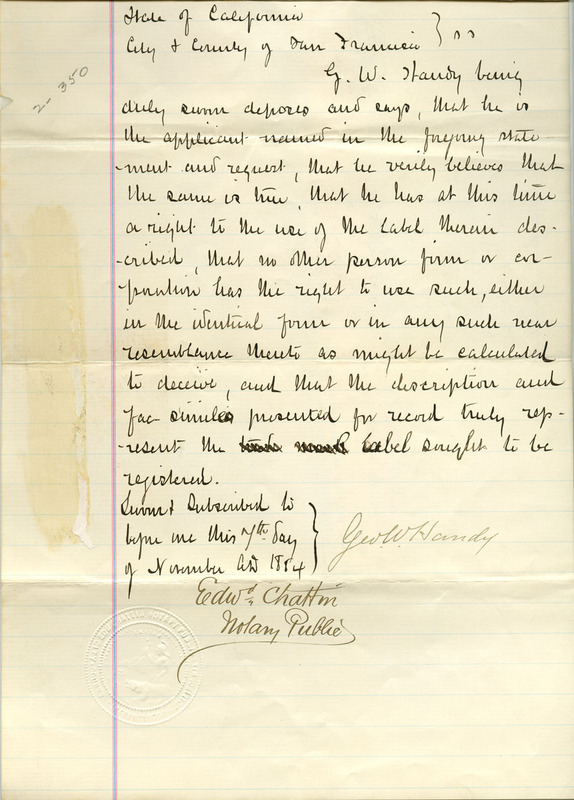 2- 350
State of California
City & County of San Francisco } ss
G. W. Handy being
duly sworn deposes and says, that he is
the applicant named in the foregoing state-
-ment and request, that he verily believes that
the same is true, that he has at this time
a right to the use of the Label therein des-
-cribed, that no other person form or cor-
-poration has the right to use such, either
in the identical form or in any such near
resemblance thereto as might be calculated
to deceive, and that the description and
fac-similes presented for record truly rep-
-resent the trade mark label sought to be
registered.
Sworn & Subscribed to
before me this 7th day
of November AD 1884
Geo. W. Handy
Edwd Chattin
Notary Public